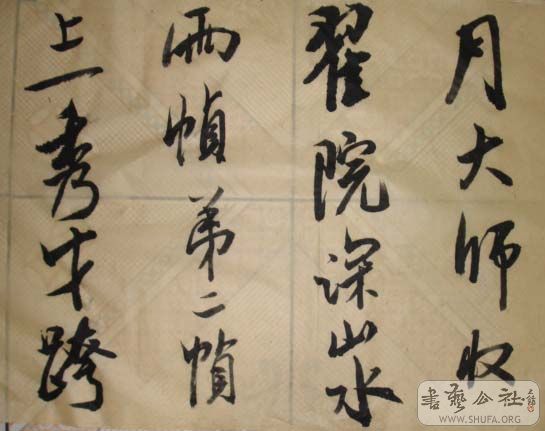 月大师收
翟院深山水
两帧弟二帧
上一秀才跨
書藝公社
WWW.SHUFA.ORG